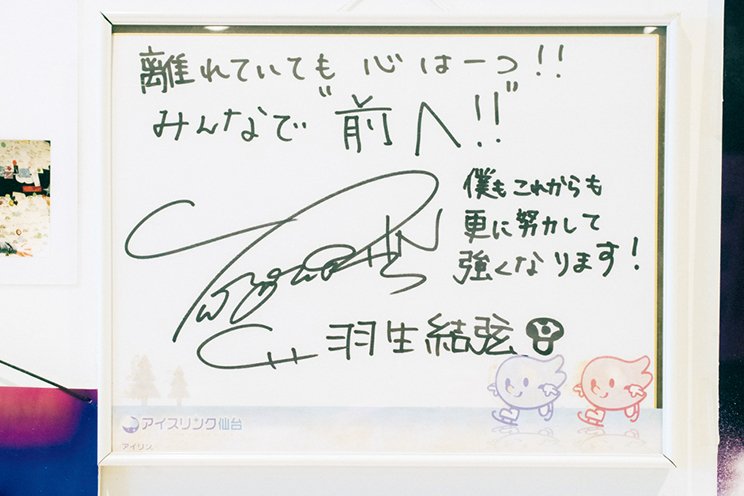 離れていても 心は一つ!!
みんなで"前へ!!"
僕もこれからも
更に努力して
強くなります!
羽生結弦
アイスリンク仙台
アイリン